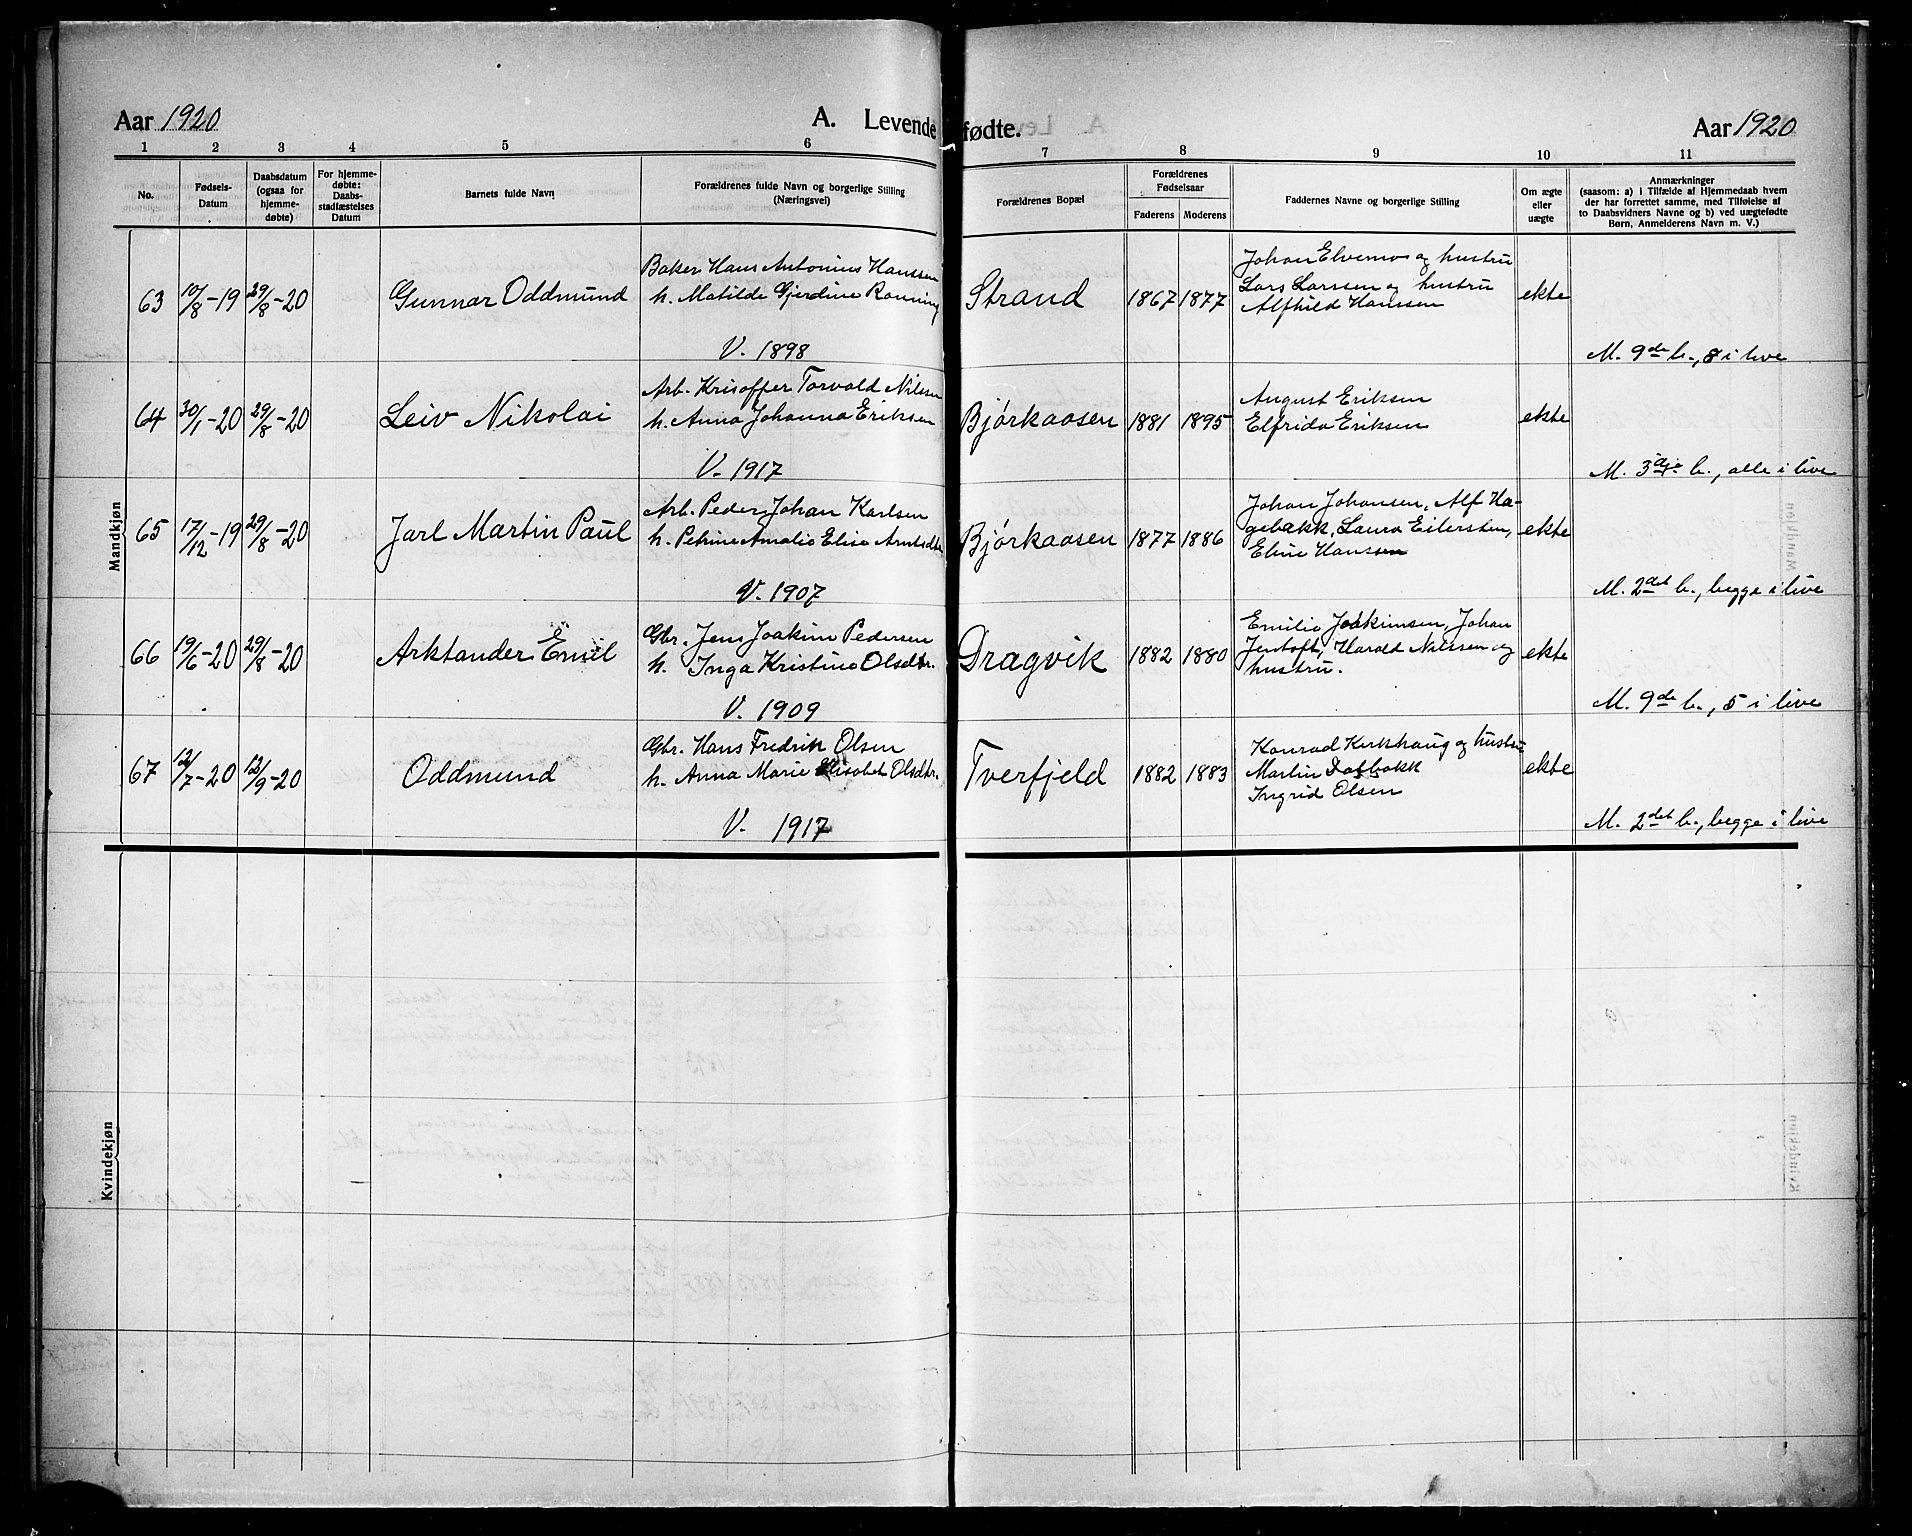 Aar 1920
A. Levende fødte.
Aar 1920
1 2 3 4 5 6 7 8 9 10 11
No.
Fødsels-
Datum
Daabsdatum
(ogsaa for
hjemme-
døbte)
For hjemme-
døbte:
Daabs-
stadfæstelses
Datum
Barnets fulde Navn
Forældrenes fulde Navn og borgerlige Stilling
(Næringsvei)
Forældrenes Bopæl
Forældrenes
Fødselsaar
Faderens Moderens
Faddernes Navne og borgerlige Stilling
Om ægte
eller
uægte
Anmærkninger
(saasom: a) i Tilfælde af Hjemmedaab hvem
der har forrettet samme, med Tilføielse af
to Daabsvidners Navne og b) ved uægtefødte
Børn, Anmelderens Navn m. V.)
Mandkjøn
63 10/8-19 29/8-20 Gunnar Oddmund
Baker Hans Antonius Hanssen
h. Matilde Gjerdine Rønning
V. 1898
Strand 1867 1877
Johan Elvemo og hustru
Lars Larssen og hustru
Alfhild Hanssen
ekte
M. 9de b., 8 i live
64 30/1-20 29/8-20 Leiv Nikolai
Arb. Krisoffer Torvald Nilssen
h. Anna Johanna Eriksen
V. 1917
Bjørkaasen 1881 1895
August Eriksen
Elfrida Eriksen
ekte
M. 3dje b., alle i live
65 17/12-19 29/8-20 Jarl Martin Paul
Arb. Peder Johan Karlsen
h. Petrine Amalie Elise Arntsdtr
V. 1907
Bjørkaasen 1877 1886
Johan Johansen, Alf Ha-
gebakk, Laura Eilertsen,
Eline Hanssen
ekte
M. 2det b., begge i live
66 19/6-20 29/8-20 Arktander Emil
Gbr. Jens Joakim Pedersen
h. Inga Kristine Olsdtr.
V. 1909
Dragvik 1882 1880
Emilie Joakimsen, Johan
Jentoft, Harald Nilssen og
hustru.
ekte
M. 9de b., 5 i live
67 12/7-20 12/9-20 Oddmund
Gbr. Hans Fredrik Olsen
h. Anna Marie Elisabet Olsdtr.
V. 1917
Tverfjeld 1882 1883
Konrad Kirkhaug og hustru
Martin
Ingrid Olsen
ekte
M. 2det b., begge i live
Kvindekjøn